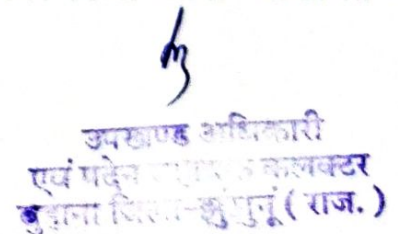 उपखण्ड अधिकारी
एवं पदेन सहायक कलक्टर
बुहाना जिला-झुंझुनूं ( राज. )